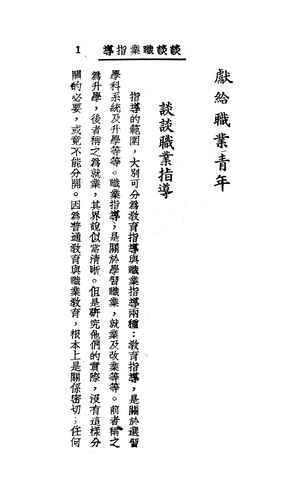 談談職業指導
1
獻給職業青年
談談職業指導
指導的範圍，大別可分爲敎育指導與職業指導兩種：敎育指導，是關於選習
學科系統及升學等等。職業指導，是關於學習職業，就業及改業等等。前者稱之
爲升學，後者稱之爲就業，其界說似當淸晰。但是硏究他們的實際，沒有這樣分
關的必要，或竟不能分開。因爲普通敎育與職業敎育，根本上是關係密切；任何